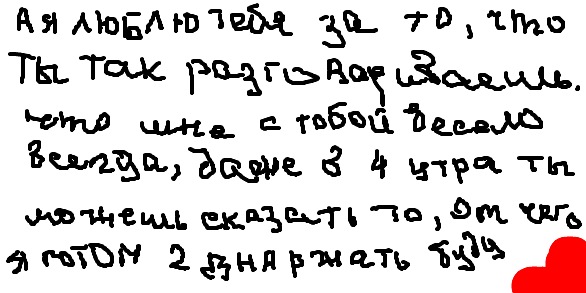 А я люблю тебя за то, что
ты так разговариваешь.
что мне с тобой весело
всегда, даже в 4 утра ты
можешь сказать то, от чего
я потом 2 дня ржать буду